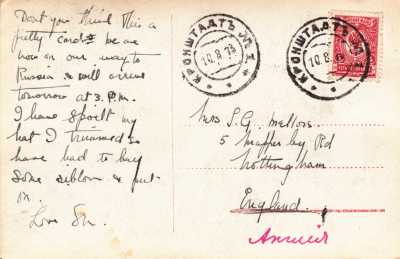 Dont you think this a
pretty card we are
now on our way to
Russia & will arrive
tomorrow at 3. P.M.
I have spoilt my
hat I trimmed &
have had to buy
some ribbon & put
on.
Love
КРОНШТАДТЪ
10.8.
КРОНШТАДТЪ
10.8.
Miss S.G. Mellors
5 Mapperley Rd
Nottingham
England.